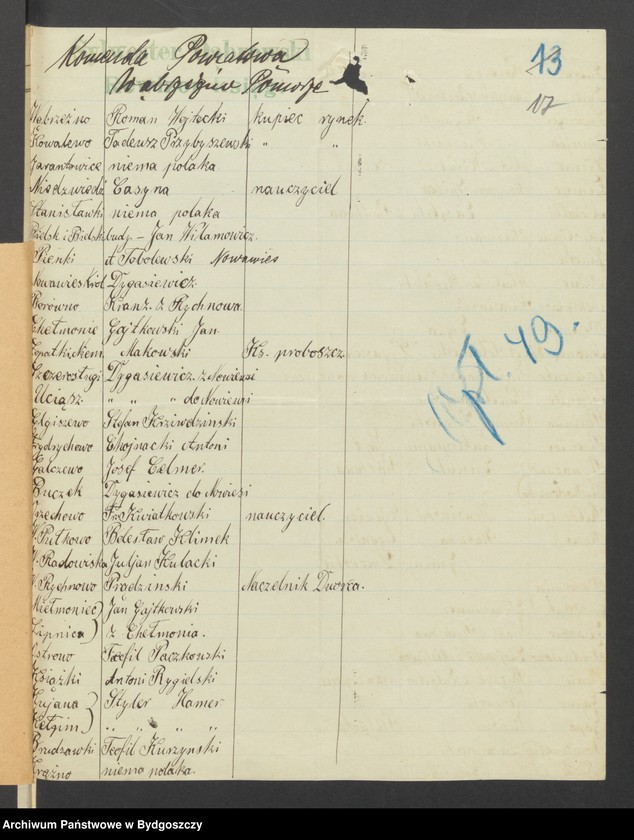 Komenda Powiatowa
Wąbrzeźno Pomorze
13
17
Wąbrzeźno Roman Wojtecki kupiec rynek.
Kowalewo Tadeusz Przybyszewski " "
Zarantowice niema polaka
Niedzwiedź Casyna nauczyciel
Stanisławki niema polaka
budz - Jan Wilamowicz.
Sienki Tobolewski Nowawies
Nowawieś Król Dygasiewicz.
Borówno Kranz. z Rychnowa.
Chełmonie Gajtkowski Jan
Makowski Ks. proboszcz
Dygasiewicz. z Nowiewsi
Uciąż " " " do Nowiewsi
Elgiszewo Stefan
Chojnacki Antoni
Gałczewo Josef Celmer.
Pruczek Dygasiewicz do Nowiewsi
Orzechowo Fr. Kwiatkowski nauczyciel.
W. Pułkowo Bolesław Klimek
W. Radowiska Juljan Kulacki
W. Rychnowo Prądzinski Naczelnik Dworca.
Jan Gajtkowski
Lipnica) z Chełmonia.
Ostrowo Teofil Paczkowski
Książki Antoni Rygielski
Łujana) Styler Hamer
" " " "
Brudzawki Teofil Kurzynski
niema polaka.
49.
Archiwum Państwowe w Bydgoszczy